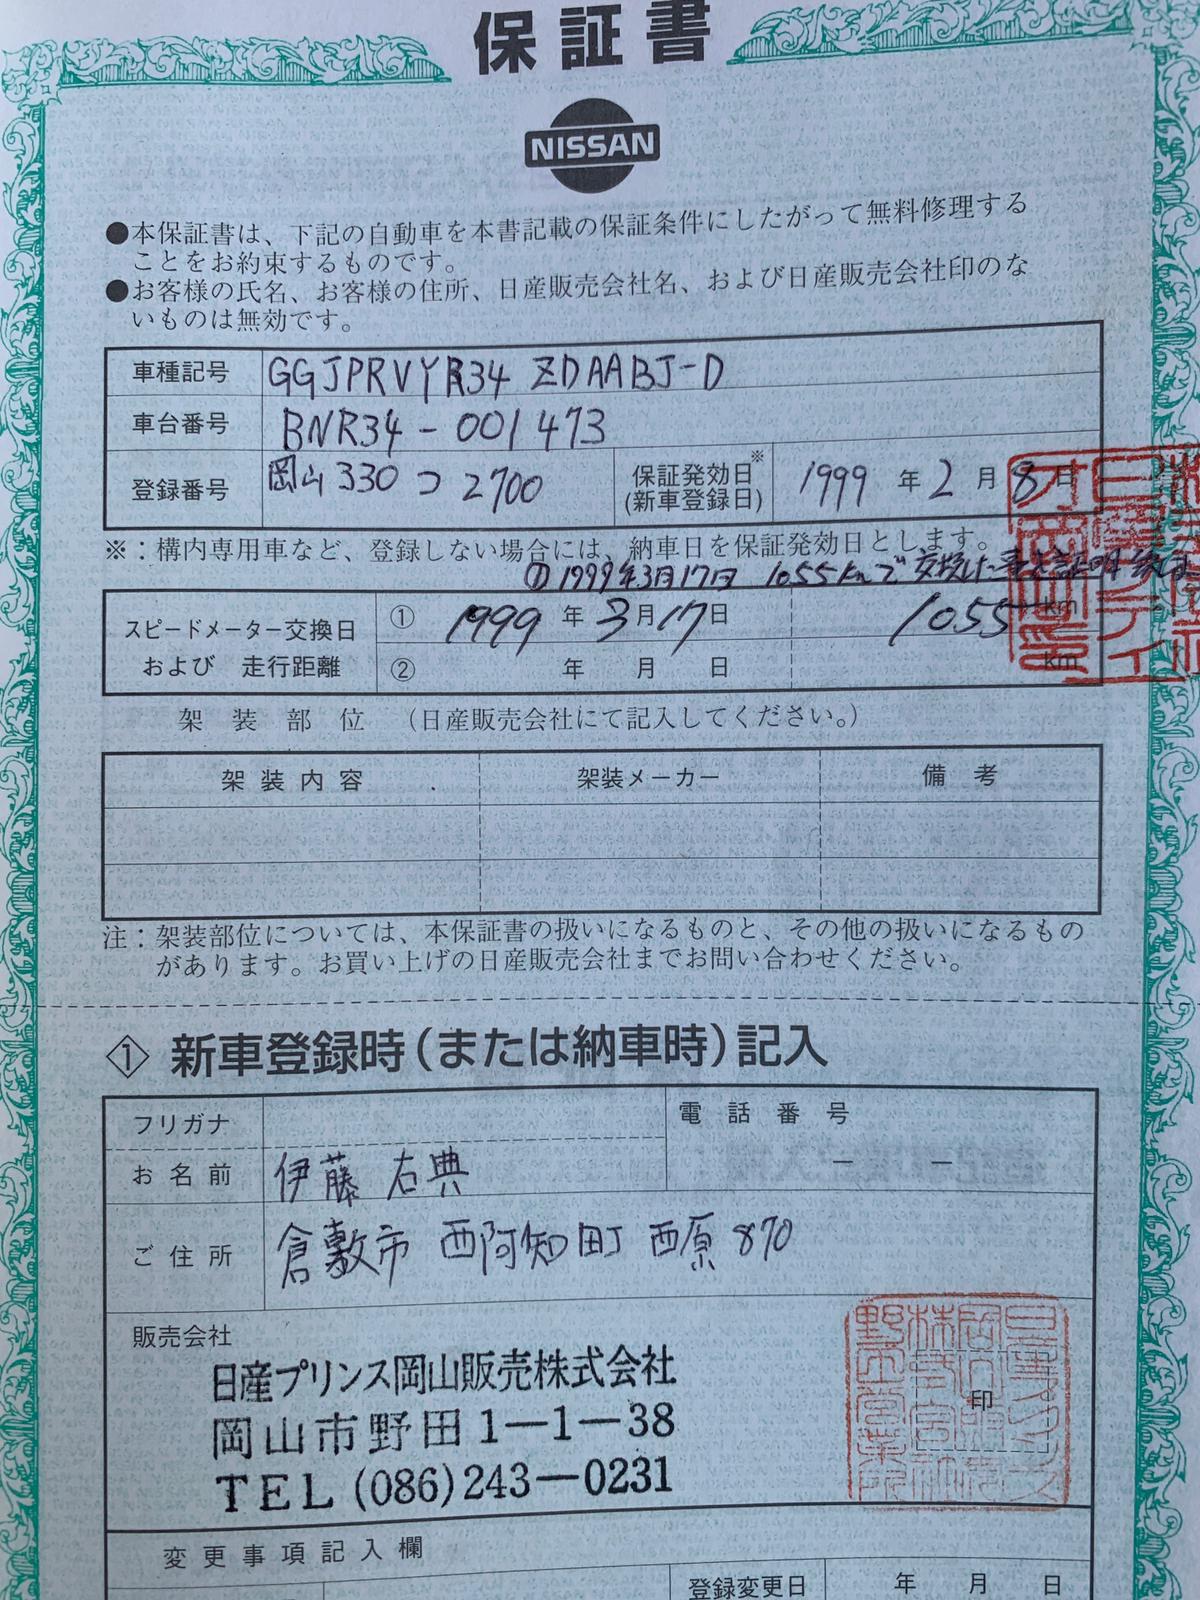 保証書
NISSAN
●本保証書は、下記の自動車を本書記載の保証条件にしたがって無料修理する
ことをお約束するものです。
●お客様の氏名、お客様の住所、日産販売会社名、および日産販売会社印のな
いものは無効です。
車種記号 GGJPRVYR34 ZDAABJ-D
車台番号 BNR34-001473
登録番号 岡山330 コ 2700 保証発効日※ (新車登録日) 1999年2月8日
※：構内専用車など、登録しない場合には、納車日を保証発効日とします。
① 1999年3月17日 1055kmで交換した事を証明
スピードメーター交換日 ① 1999年3月17日 1055km
および 走行距離 ② 年 月 日 km
架装部位 （日産販売会社にて記入してください。）
架装内容 架装メーカー 備考
注：架装部位については、本保証書の扱いになるものと、その他の扱いになるもの
があります。お買い上げの日産販売会社までお問い合わせください。
① 新車登録時（または納車時）記入
フリガナ 電話番号
お名前 伊藤 右典 － －
ご住所 倉敷市 西阿知町 西原 870
販売会社
日産プリンス岡山販売株式会社
岡山市野田1－1－38
印
TEL (086)243－0231
変更事項記入欄
登録変更日 年 月 日